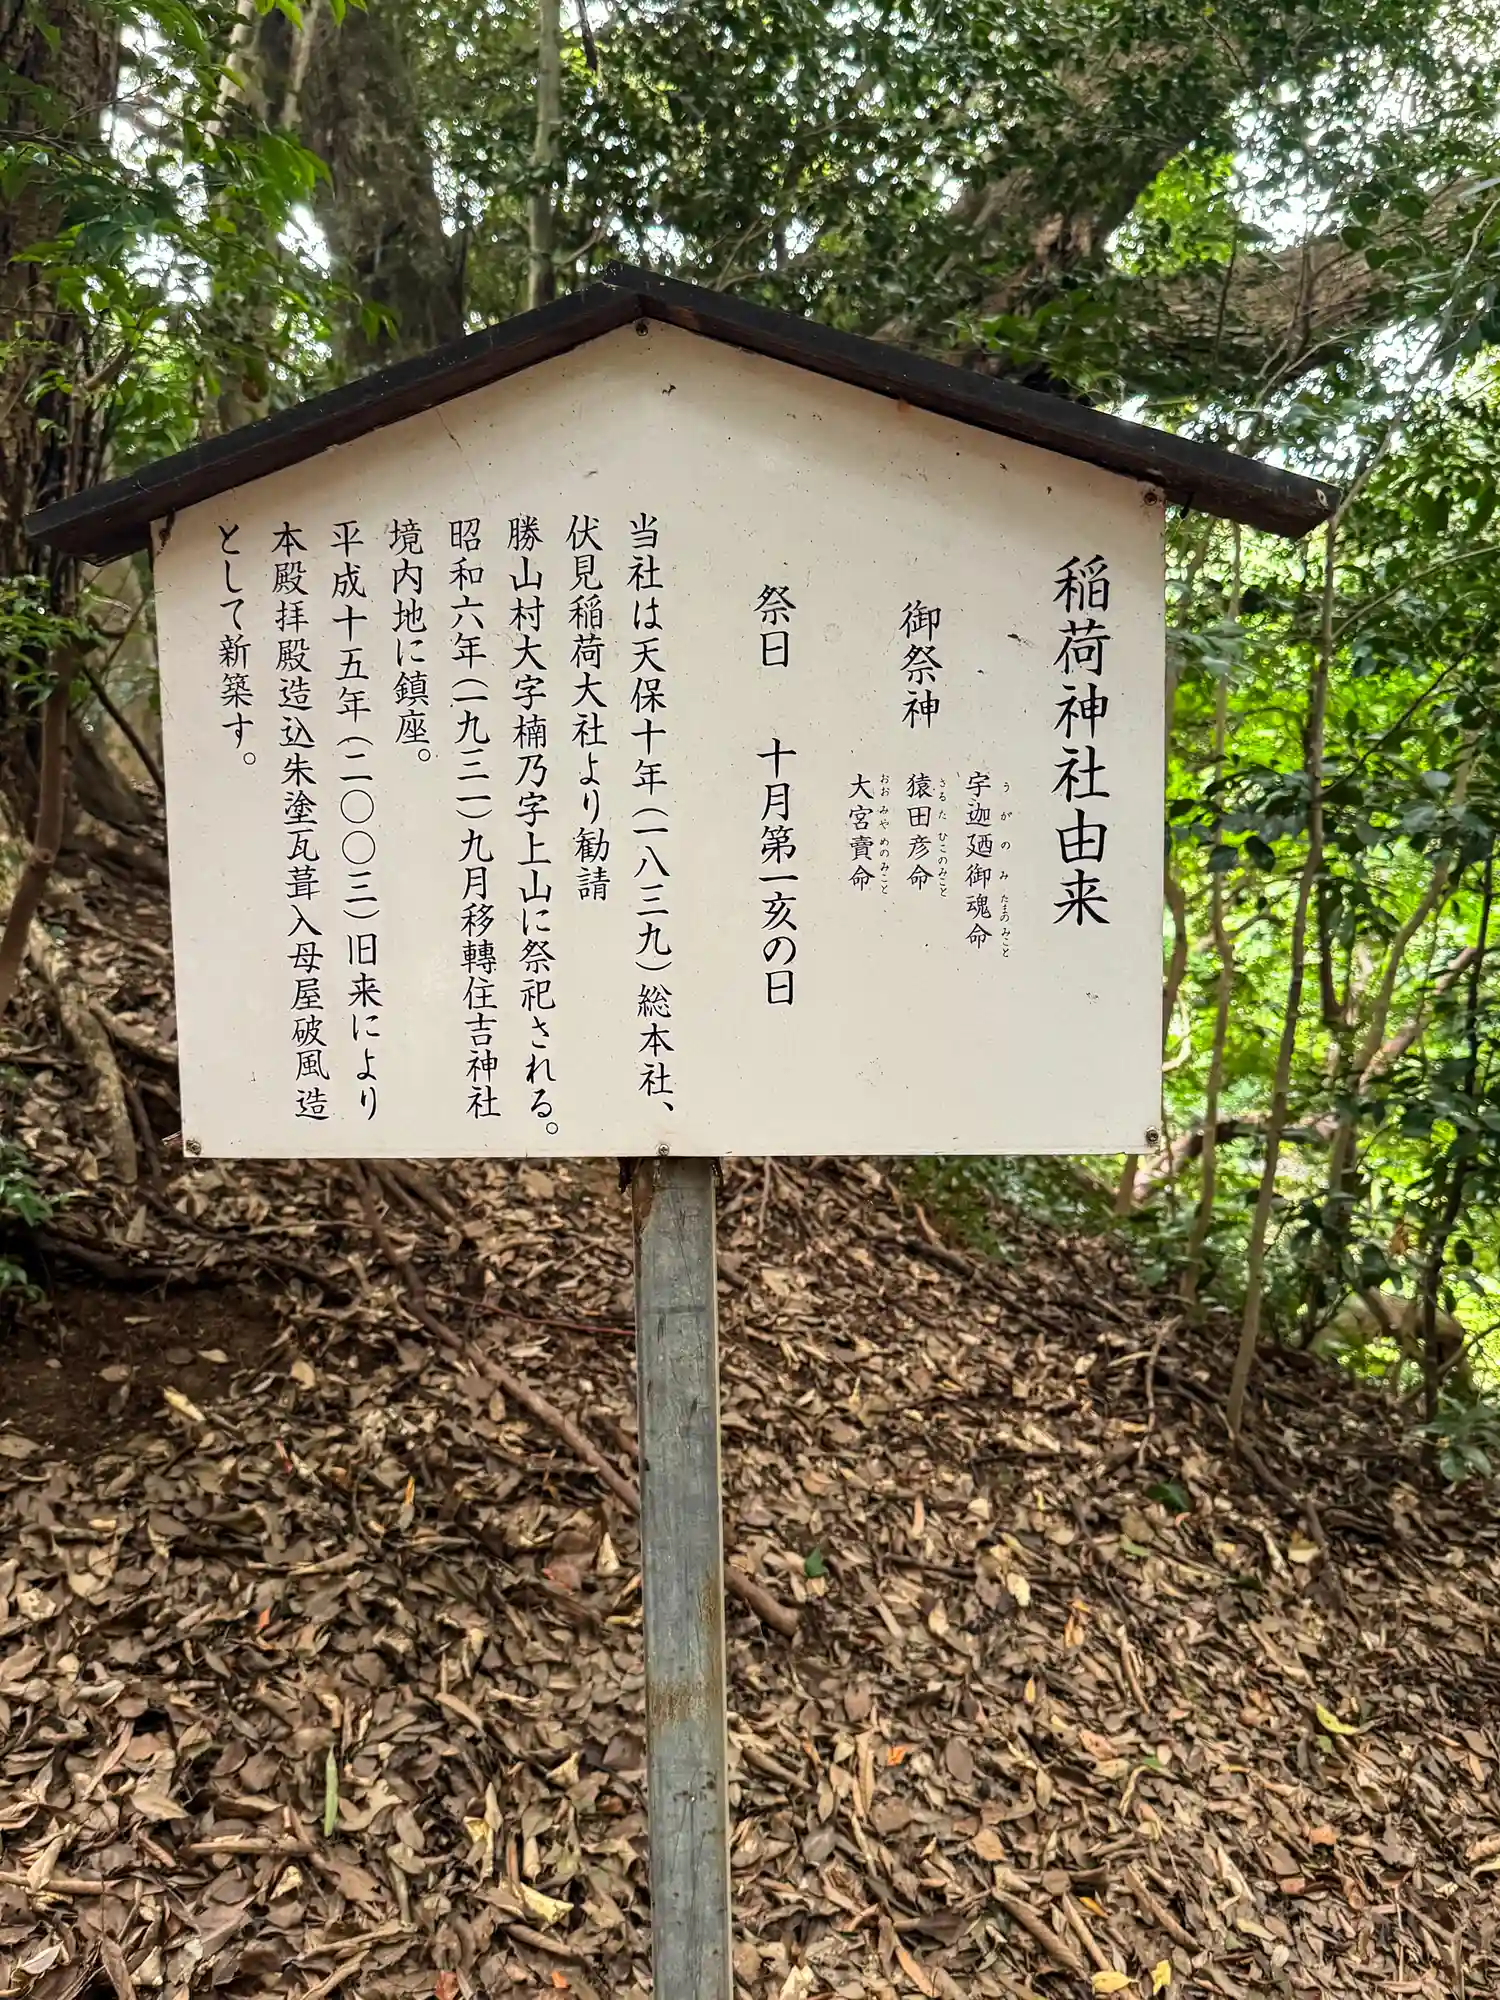 稲荷神社由来
御祭神
宇迦廼御魂命
うがのみたまのみこと
猿田彦命
さるたひこのみこと
大宮賣命
おおみやめのみこと
祭日　十月第一亥の日
当社は天保十年(一八三九)総本社、
伏見稲荷大社より勧請
勝山村大字楠乃字上山に祭祀される。
昭和六年(一九三一)九月移轉住吉神社
境内地に鎮座。
平成十五年(二〇〇三)旧来により
本殿拝殿造込朱塗瓦葺入母屋破風造
として新築す。